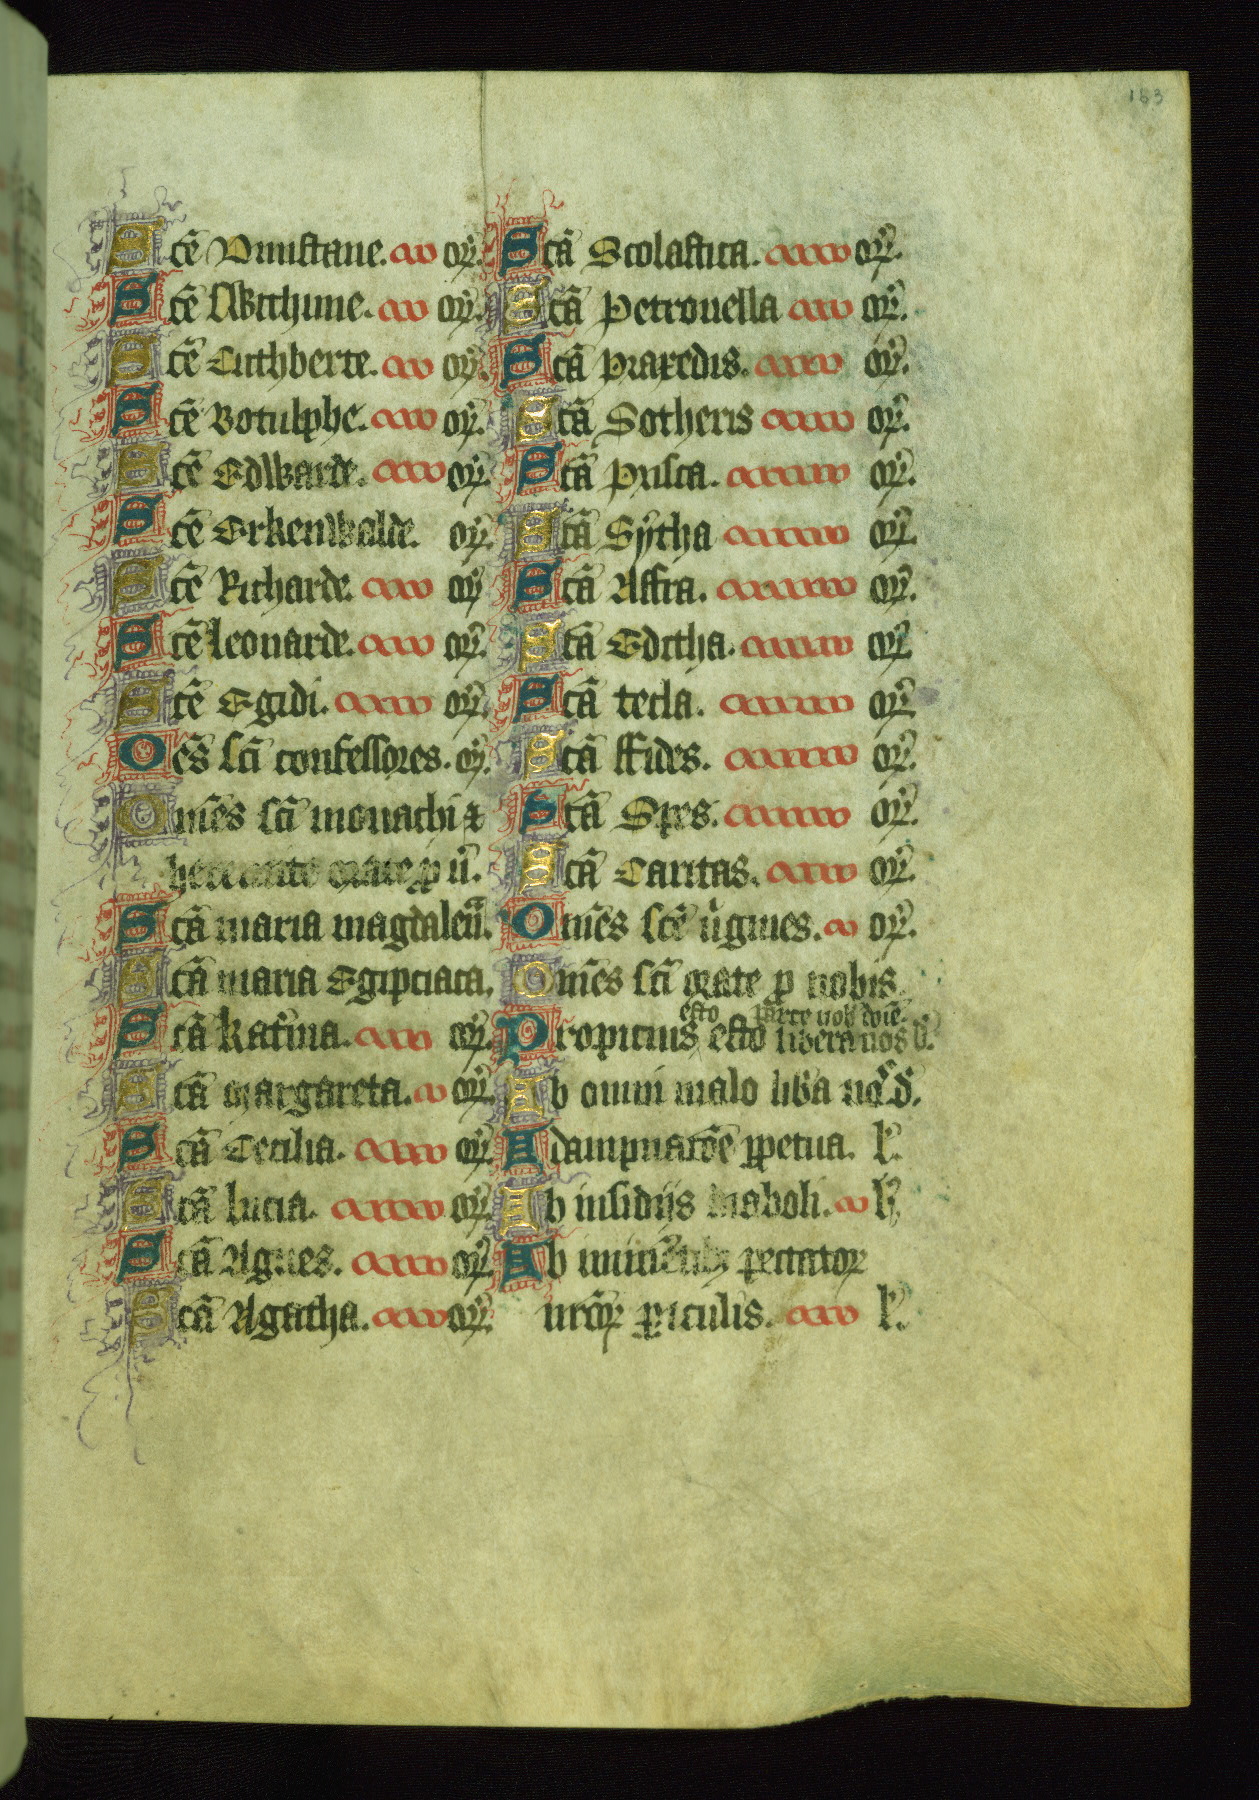 153
Scē Dunstane. or̄.
Scē Swithune. or̄.
Scē Cuthberte. or̄.
Scē Botulphe. or̄.
Scē Edwarde. or̄.
Scē Erkenwalde. or̄.
Scē Richarde. or̄
Scē leonarde. or̄.
Scē Egidi. or̄.
Oēs scī confessores. or̄.
Omēs scī monachi ⁊
hermite orate ꝓ ū.
Scā maria magdalen̄.
Scā maria Egipciaca.
Scā Katina. or̄.
Scā Margareta. or̄.
Scā Cecilia. or̄.
Scā lucia. or̄.
Scā Agnes. or̄.
Scā Agatha. or̄.
Scā Scolastica. or̄.
Scā Petronella or̄.
Scā Praxedis. or̄.
Scā Sotheris or̄.
Scā Prisca. or̄.
Scā Sytha or̄.
Scā Affra. or̄.
Scā Editha. or̄
Scā tecla. or̄.
Scā ffides. or̄.
Scā Spes. or̄.
Scā Caritas. or̄.
Omēs scē ūgines. or̄.
Omēs scī orate ꝓ nobis
esto parce nob dnē.
Propicius esto libera nos d̄.
Ab omni malo liba no d̄.
A dampnacōe ꝑpetua. l.
Ab insidijs diaboli. l.
Ab peccator̄
nrōr̄ ꝑiculis. l.